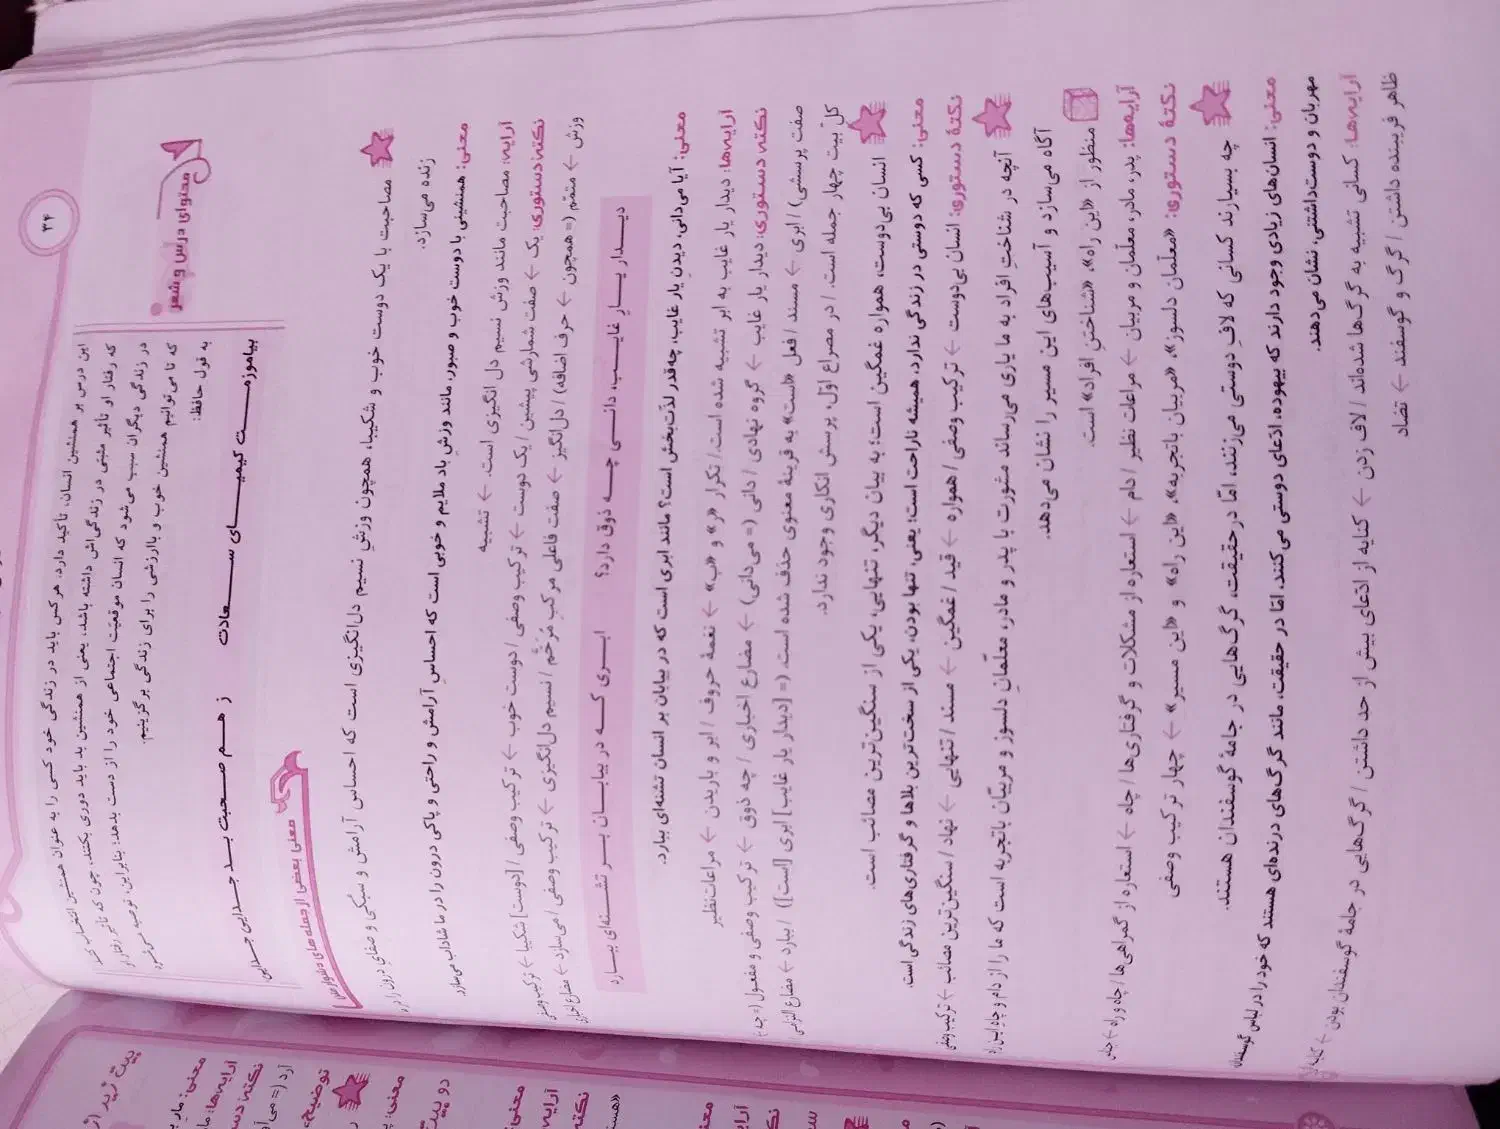 ۳۴
محتوای درس و شعر
این درس بر همنشین انسان، تأکید دارد. هرکس باید در زندگی خود کسی را به عنوان همنشین انتخاب
که رفتار او تأثیر مثبتی در زندگی‌اش داشته باشد، یعنی از همنشین بد باید دوری بکند. چون که تأثیر رفتار او
در زندگی دیگران سبب می‌شود که انسان موقعیت اجتماعی خود را از دست بدهد؛ بنابراین، توصیه می‌شود
که تا می‌توانیم همنشین خوب و باارزشی را برای زندگی برگزینیم.
به قول حافظ:
بیاموزمت کیمیای سعادت ز هم صحبت بد جدایی جدایی
معنی بعضی از جمله های دشوار متن
مصاحبت با یک دوست خوب و شکیبا، همچون وزشِ نسیم دل‌انگیزی است که احساس آرامش و سبُکی و صفایِ درون را در
زنده می‌سازد.
معنی: همنشینی با دوست خوب و صبور، مانند وزشِ بادِ ملایم و خوبی است که احساسِ آرامش و راحتی و پاکی درون را در ما شاداب می‌سازد.
آرایه: مصاحبت مانند وزش نسیم دل انگیزی است. ← تشبیه
نکته دستوری: یک ← صفت شمارشی پیشین / یک دوست ← ترکیب وصفی / دوست خوب ← ترکیب وصفی / [دوست] شکیبا ← ترکیب وصفی
وزش ← متمم (= همچون ← حرف اضافه) / دل‌انگیز ← صفت فاعلی مرکبِ مُرَخَّم / نسیم دل‌انگیزی ← ترکیب وصفی / می‌سازد ← مضارع اخباری
دیدار یار غایب، دانی چه ذوق دارد؟ ابری که در بیابان بر تشنه‌ای ببارد
معنی: آیا می‌دانی، دیدنِ یارِ غایب، چه‌قدر لذّت‌بخش است؟ مانند ابری است که در بیابان بر انسان تشنه‌ای ببارد.
آرایه‌ها: دیدار یار غایب به ابر تشبیه شده است. / تکرار «ر» و «ب» ← نغمهٔ حروف / ابر و باریدن ← مراعات‌نظیر
نکته دستوری: دیدار یار غایب ← گروه نهادی / دانی (= می‌دانی) ← مضارع اخباری / چه ذوق ← ترکیب وصفی و مفعول (= چه ←
صفت پرسشی) / ابری ← مسند / فعل «است» به قرینهٔ معنوی حذف شده است. (= [دیدار یار غایب] ابری [است]) / ببارد ← مضارع التزامی
کل بیت چهار جمله است. / در مصراع اوّل، پرسش انکاری وجود ندارد.
انسان بی‌دوست، همواره غمگین است؛ به بیان دیگر، تنهایی، یکی از سنگین‌ترین مصائب است.
معنی: کسی که دوستی در زندگی ندارد، همیشه ناراحت است؛ یعنی، تنها بودن، یکی از سخت‌ترین بلاها و گرفتاری‌های زندگی است.
نکتهٔ دستوری: انسان بی‌دوست ← ترکیب وصفی / همواره ← قید / غمگین ← مسند / تنهایی ← نهاد / سنگین‌ترین مصائب ← ترکیب وصفی
آنچه در شناختِ افراد به ما یاری می‌رساند مشورت با پدر و مادر، معلّمانِ دلسوز و مربیّانِ باتجربه است که ما را از دام و چاهِ این راه
آگاه می‌سازد و آسیب‌های این مسیر را نشان می‌دهد.
منظور از «این راه»، «شناختنِ افراد» است.
آرایه‌ها: پدر، مادر، معلّمان و مربیان ← مراعات نظیر / دام ← استعاره از مشکلات و گرفتاری‌ها / چاه ← استعاره از گمراهی‌ها / چاه و راه ← جناس
نکتهٔ دستوری: «معلّمان دلسوز»، «مربیان باتجربه»، «این راه» و «این مسیر» ← چهار ترکیب وصفی
چه بسیارند کسانی که لافِ دوستی می‌زنند، امّا درحقیقت، گرگ‌هایی در جامهٔ گوسفندان هستند.
معنی: انسان‌های زیادی وجود دارند که بیهوده، ادّعای دوستی می‌کنند، امّا در حقیقت، مانند گرگ‌های درنده‌ای هستند که خود را در لباس گوسفندان
مهربان و دوست‌داشتنی، نشان می‌دهند.
آرایه‌ها: کسانی تشبیه به گرگ‌ها شده‌اند / لاف زدن ← کنایه از ادّعای بیش از حد داشتن / گرگ‌هایی در جامهٔ گوسفندان بودن ← کنایه
ظاهر فریبنده داشتن / گرگ و گوسفند ← تضاد
معنی:
آرایه‌ها:
نکته
توضیح:
معنی:
دو بیت
معنی:
آرایه
نکته
معنی:
آرایه